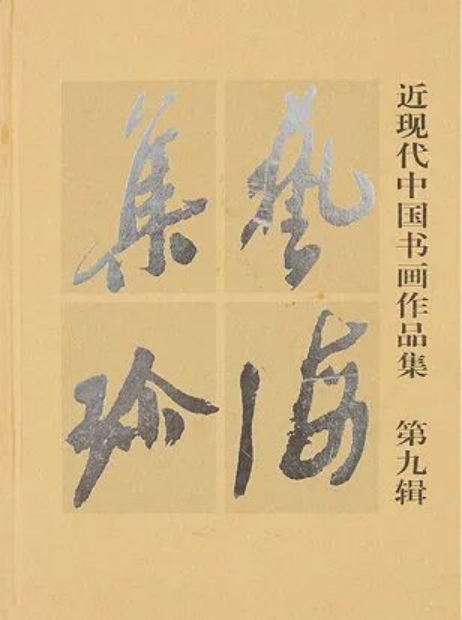 近现代中国书画作品集 第九辑
藝海
集珍